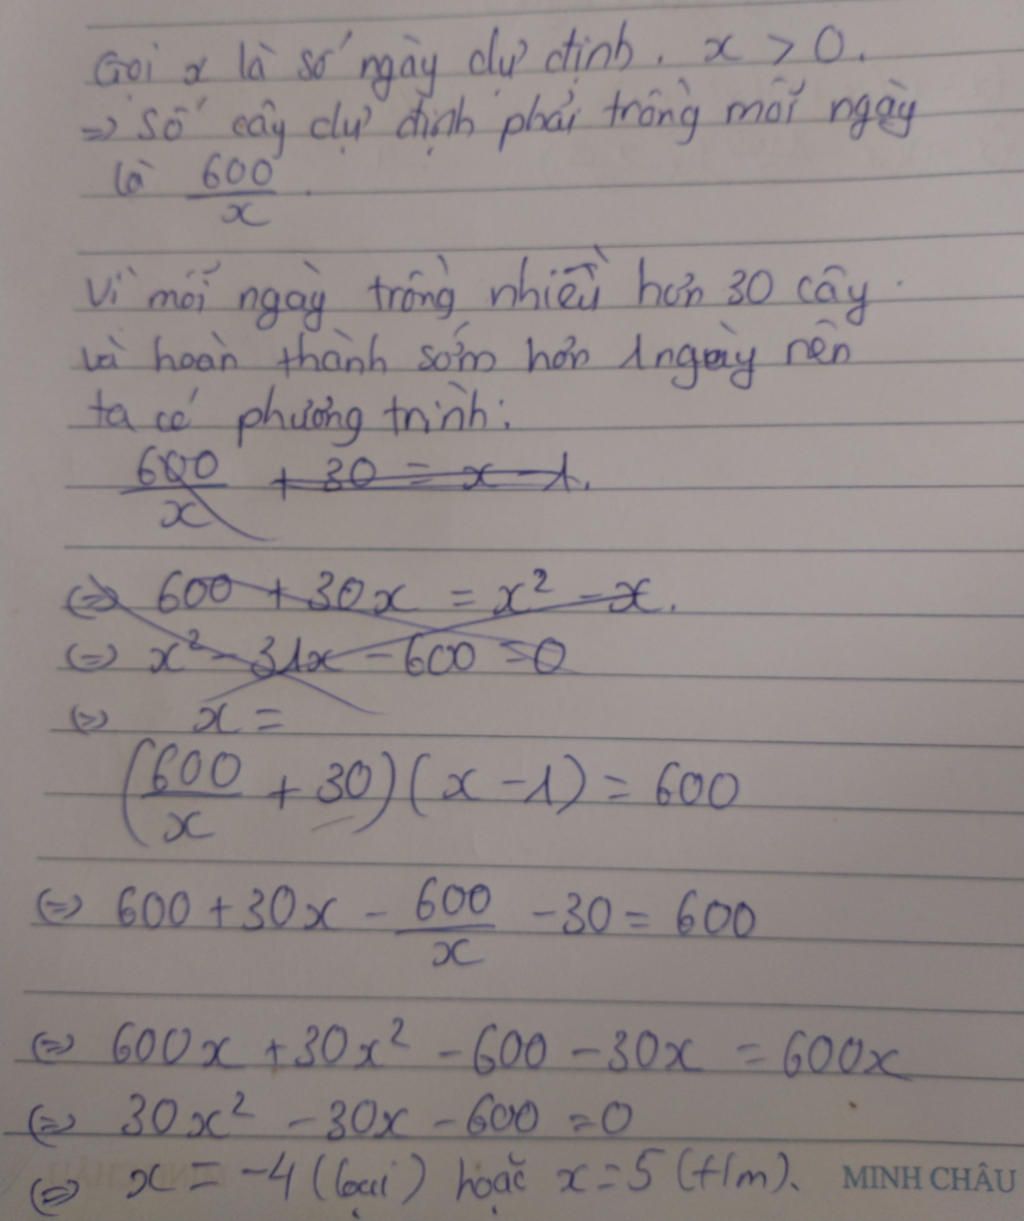 Gọi x là số ngày dự định. x > 0.
=> Số cây dự định phải trồng mỗi ngày
là 600/x.
Vì mỗi ngày trồng nhiều hơn 30 cây
và hoàn thành sớm hơn 1 ngày nên
ta có phương trình:
600/x + 30 = x - 1.
(=) 600 + 30x = x² - x.
(=) x² - 31x - 600 = 0
(=) x =
(600/x + 30)(x - 1) = 600
(=) 600 + 30x - 600/x - 30 = 600
(=) 600x + 30x² - 600 - 30x = 600x
(=) 30x² - 30x - 600 = 0
(=) x = -4 (loại) hoặc x = 5 (t/m).
MINH CHÂU